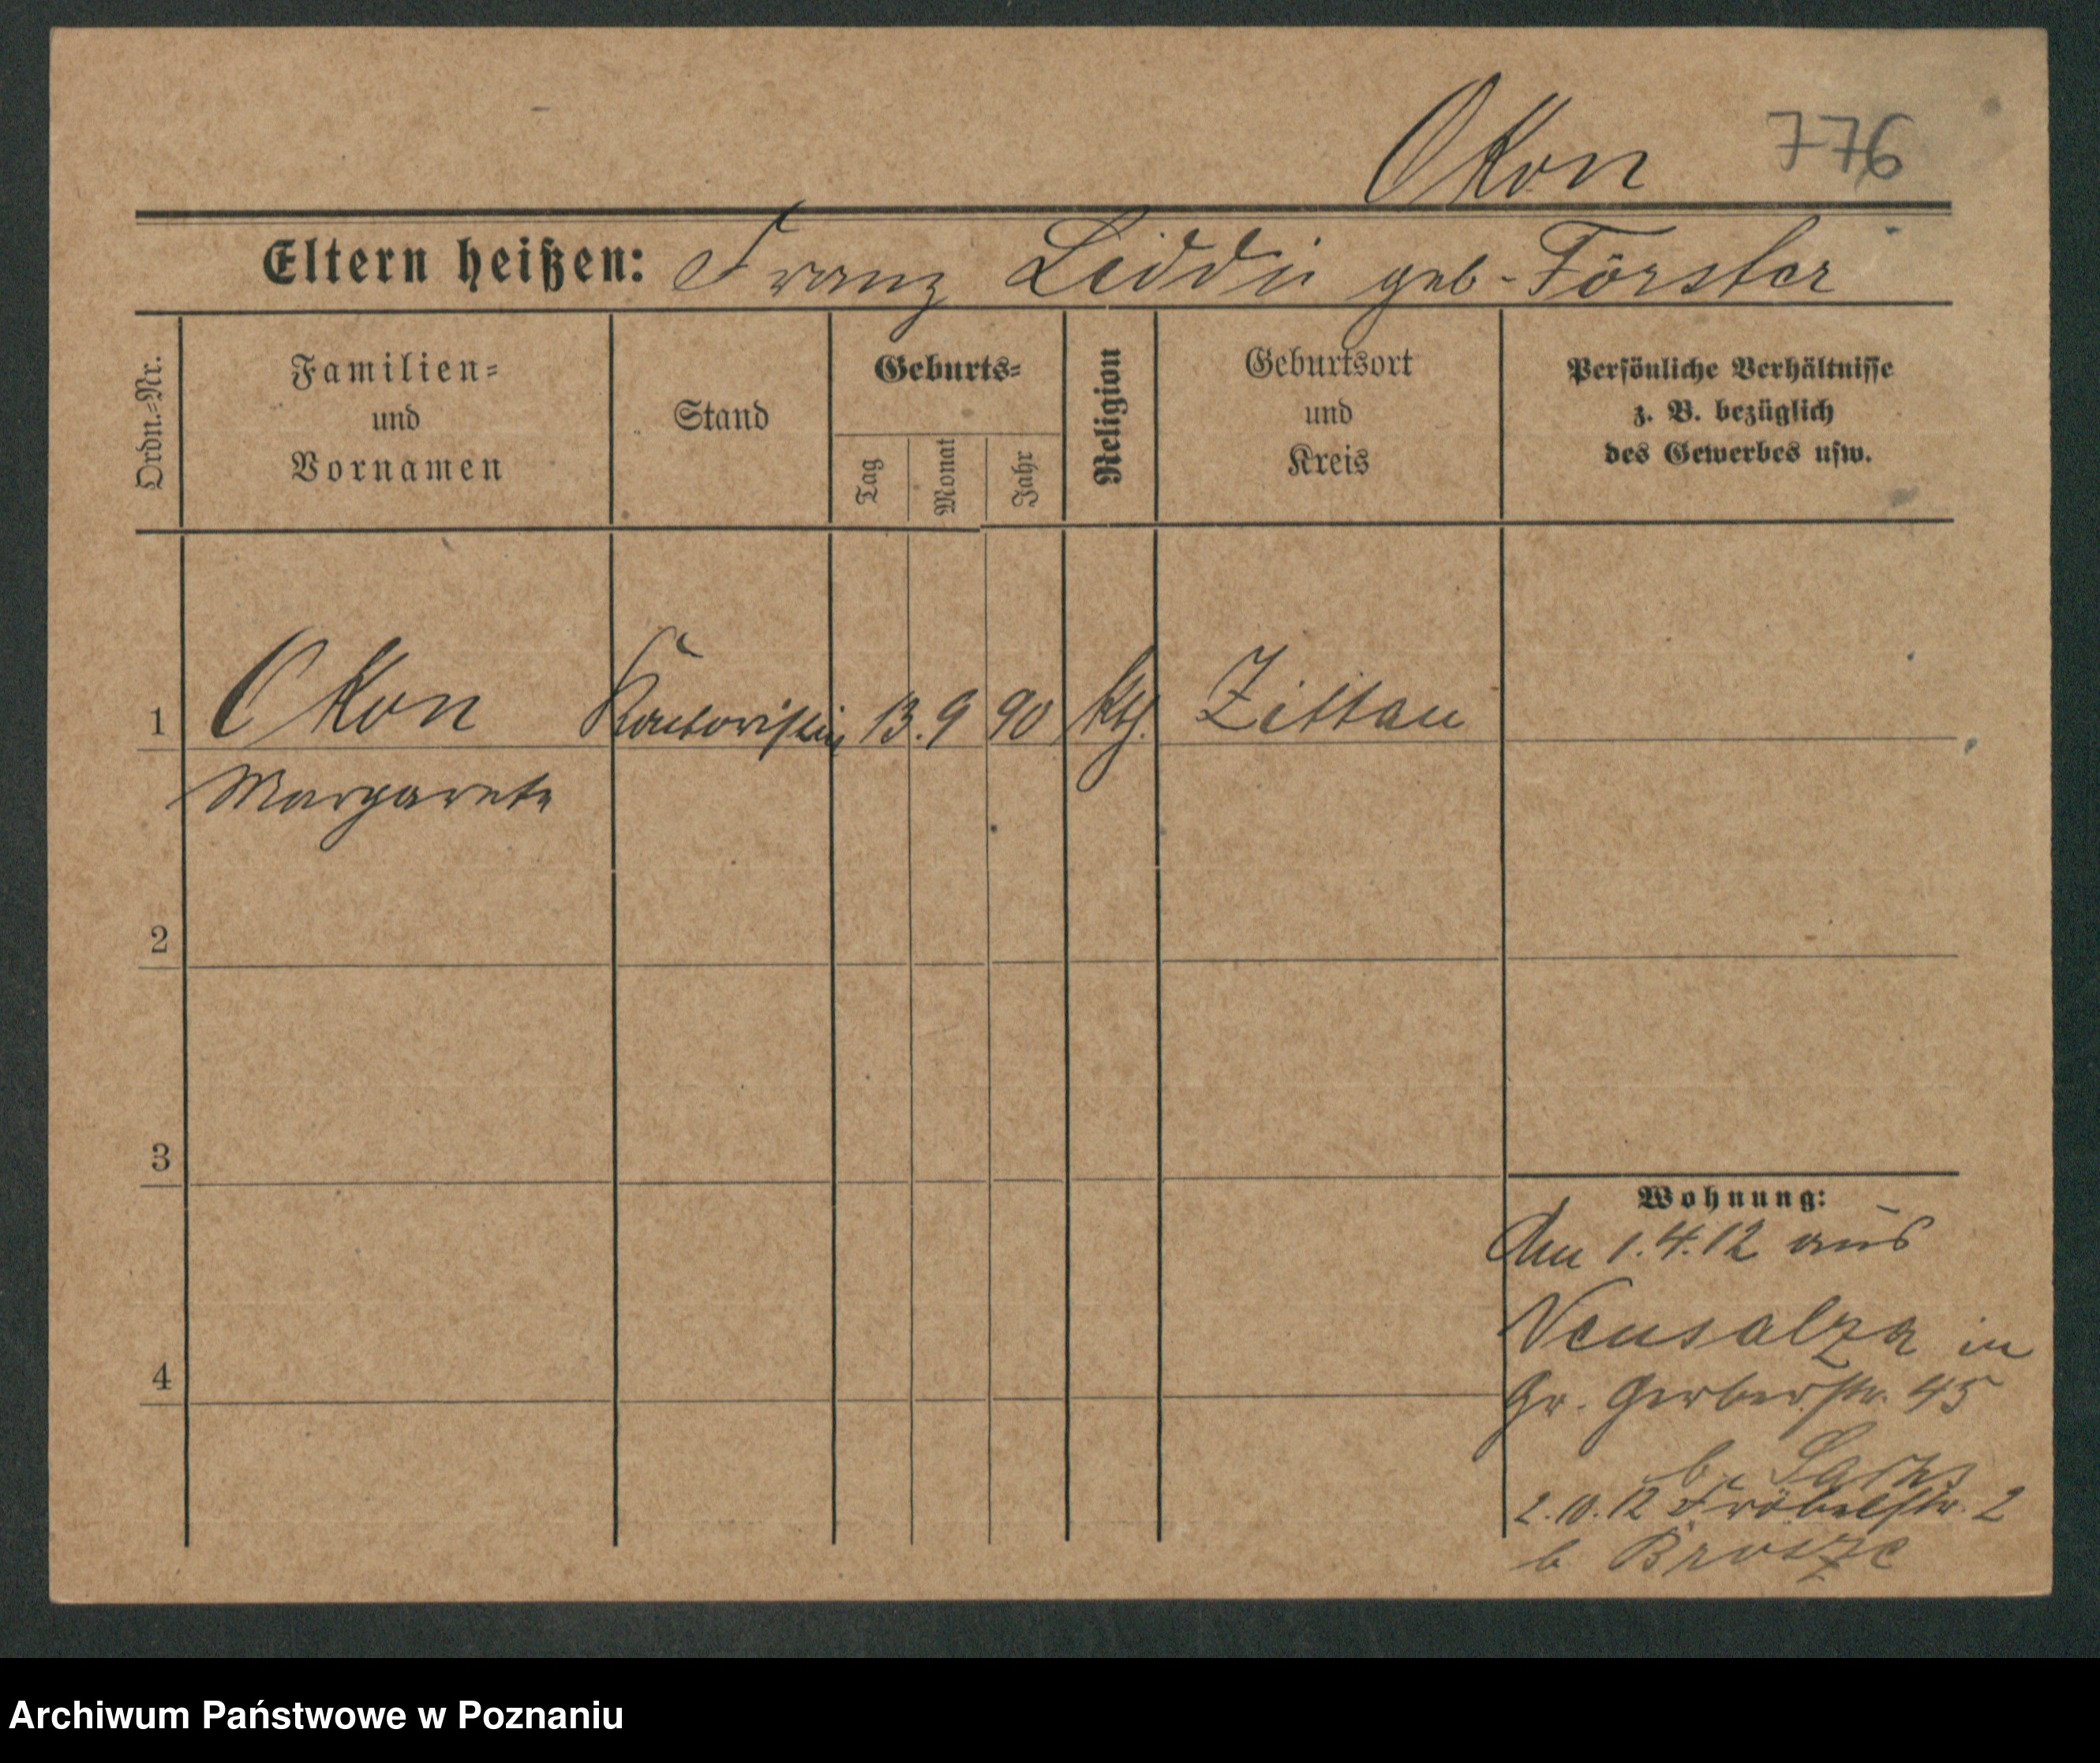 Okon 776
Eltern heißen: Franz Liddi geb. Förster
Ordn.=Nr.
Familien=
und
Vornamen
Stand
Geburts=
Tag
Monat
Jahr
Religion
Geburtsort
und
Kreis
Persönliche Verhältnisse
z. B. bezüglich
des Gewerbes usw.
1 Okon Kontoristin 13. 9 90 kth. Zittau
Margarete
2
3
4
Wohnung:
Am 1.4.12 aus
Neusalza in
Gr. Gerberstr. 45
b.
2.10.12 Fröbelstr. 2
b
Archiwum Państwowe w Poznaniu